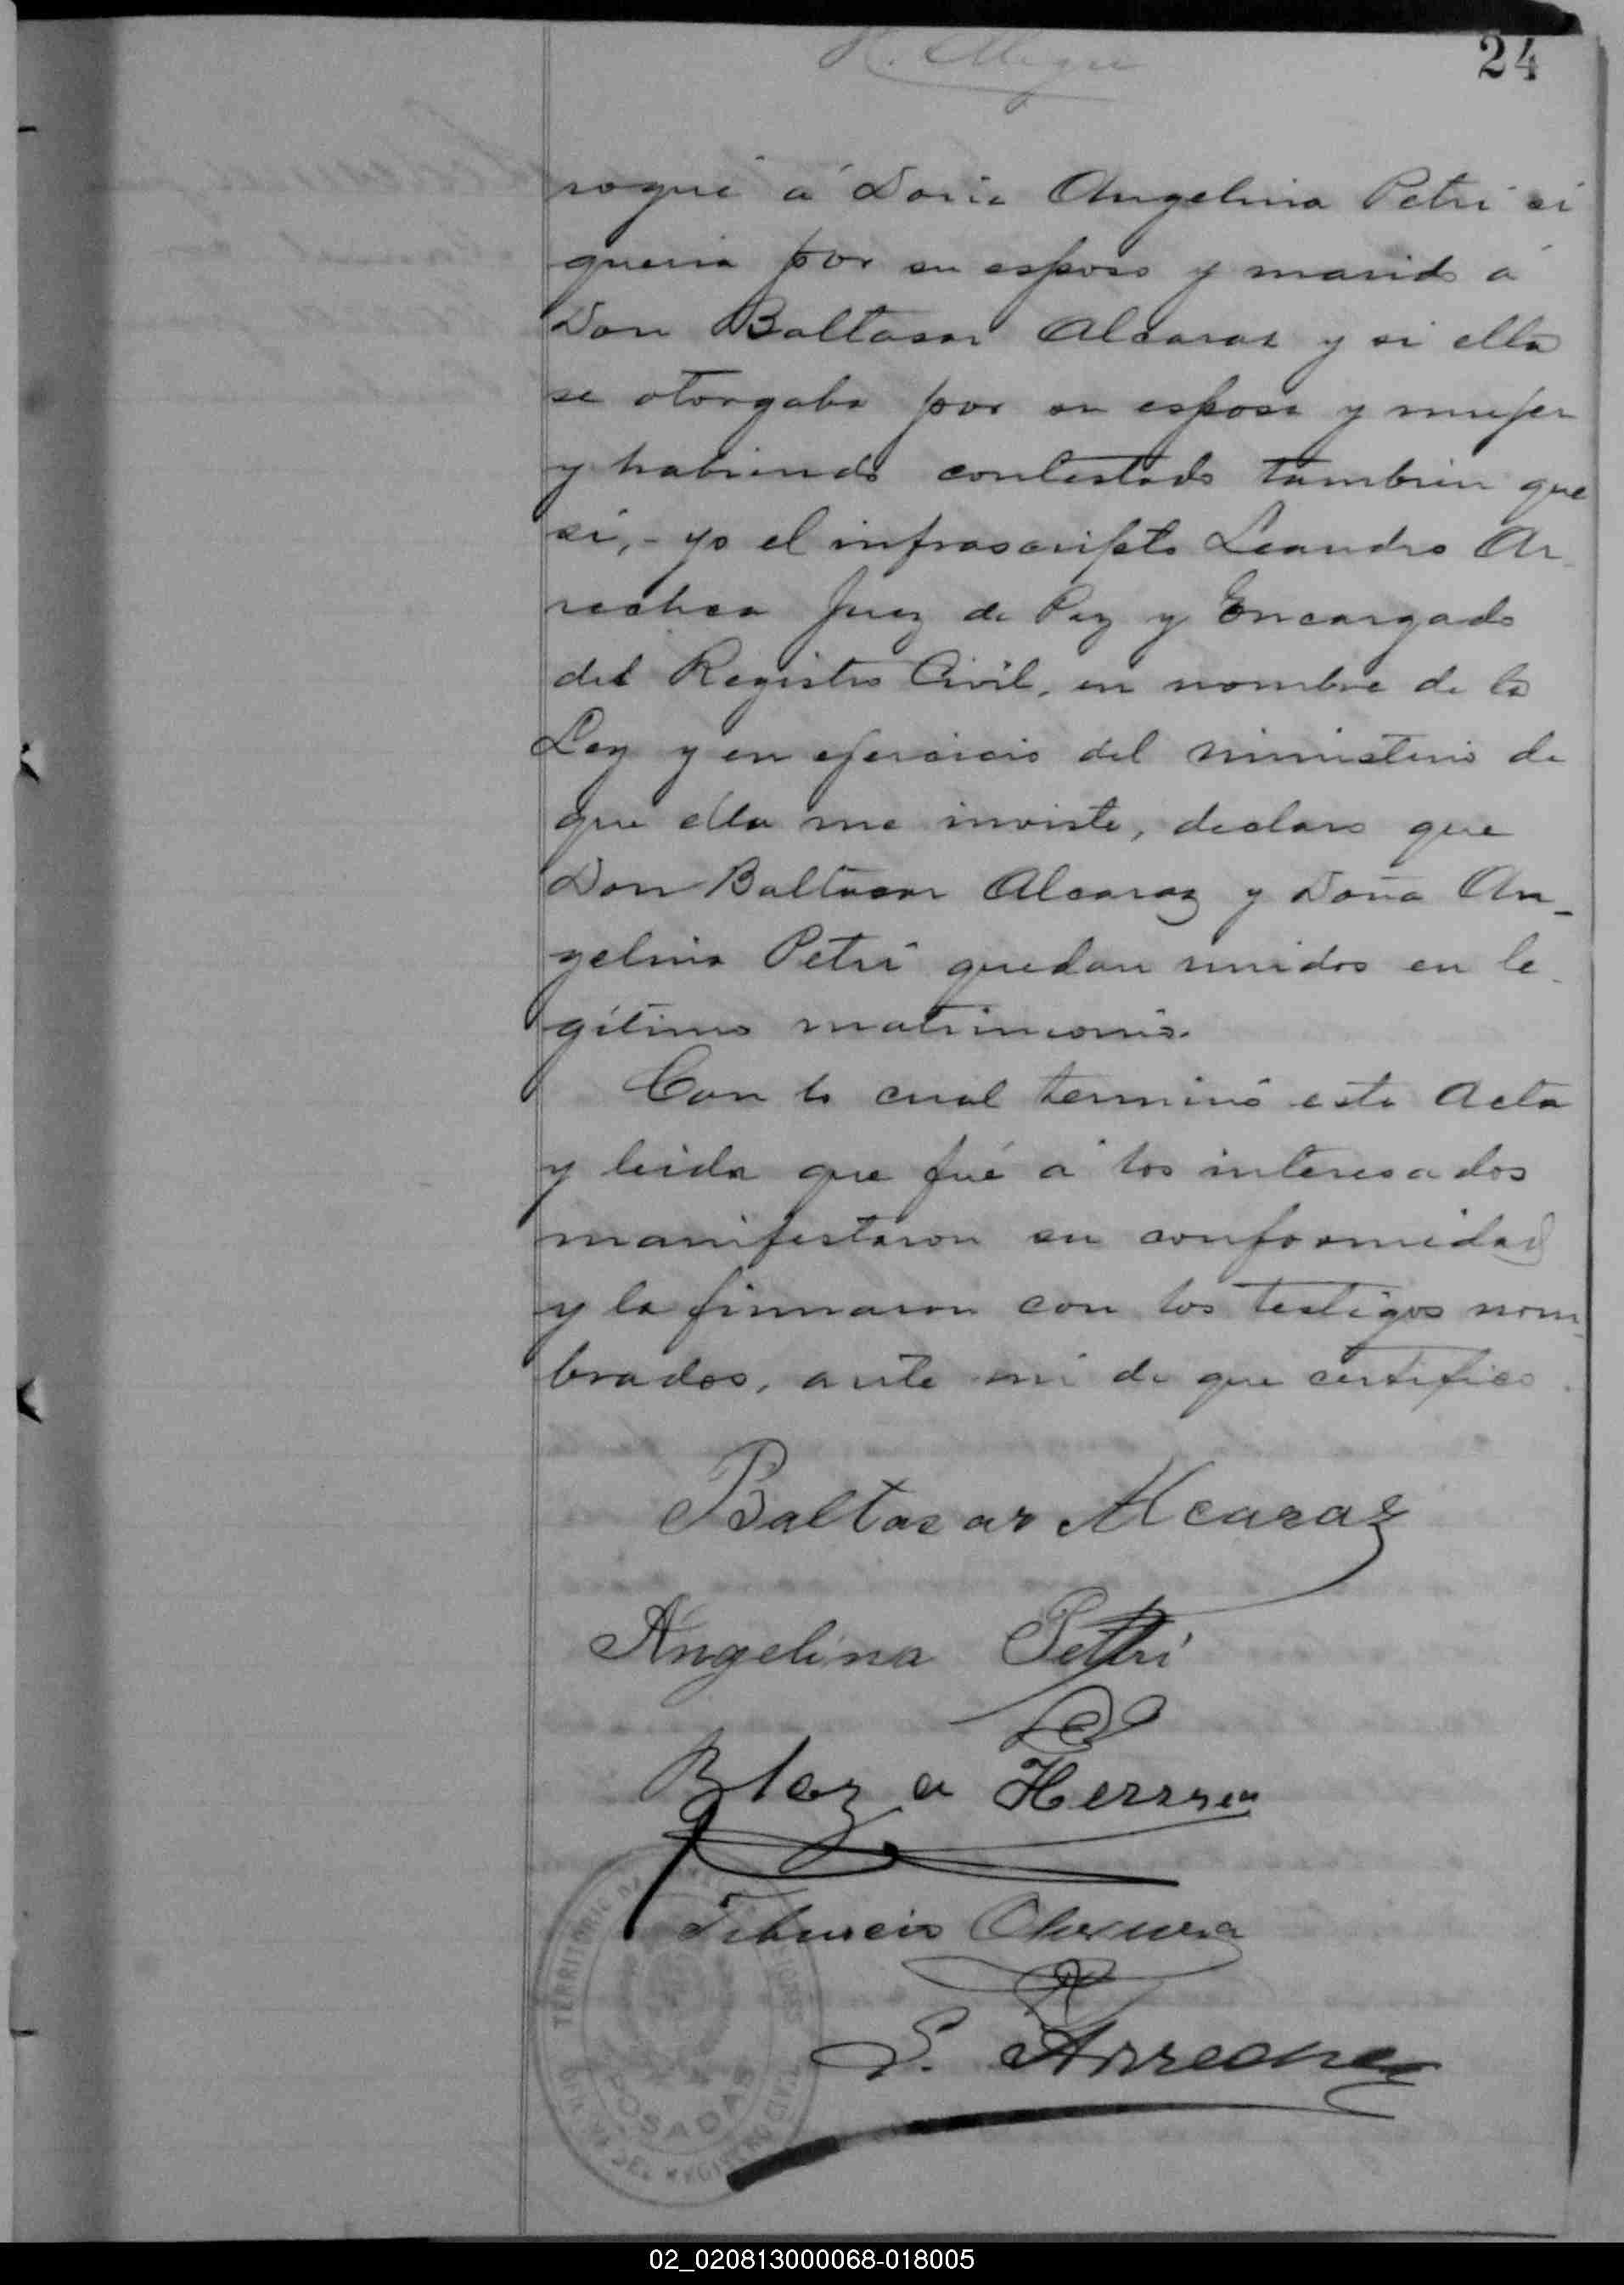 24
rogué á Doña Angelina Petri si
queria por su esposo y marido á
Don Baltasar Alcaraz y si ella
se otorgaba por su esposa y mujer
y habiendo contestado tambien que
si,- yo el infrascripto Leandro Ar
rechea Juez de Paz y Encargado
del Registro Civil, en nombre de la
Ley y en ejercicio del ministerio de
que ella me inviste, declaro que
Don Baltasar Alcaraz y Doña An-
gelina Petri quedan unidos en le
gítimo matrimonio.
Con lo cual terminó esta Acta
y leida que fué á los interesados
manifestaron su conformidad
y la firmaron con los testigos nom-
brados, ante mi de que certifico.
Baltazar Alcaraz
Angelina Petri
Blaz a Herrera
Tiburcio
L. Arrechea
TERRITORIO DE MISIONES
POSADAS
OFICINA DEL REGISTRO CIVIL
02_020813000068-018005